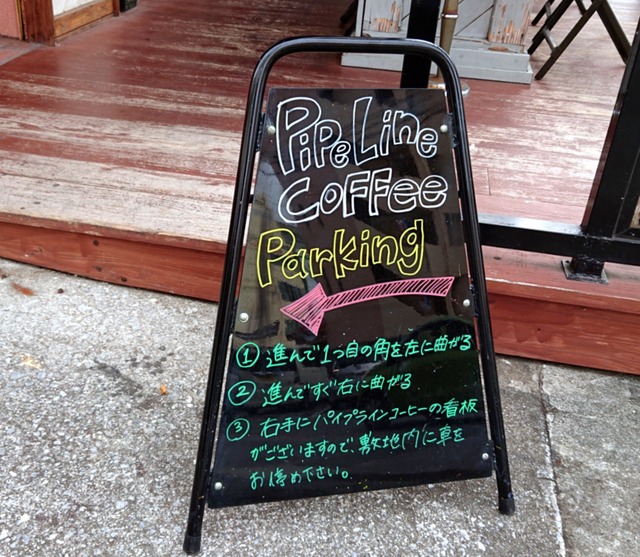 PiPeLine
COFFEE
Parking
① 進んで1つ目の角を左に曲がる
② 進んですぐ右に曲がる
③ 右手にパイプラインコーヒーの看板
がございますので、敷地内に車を
お停め下さい。